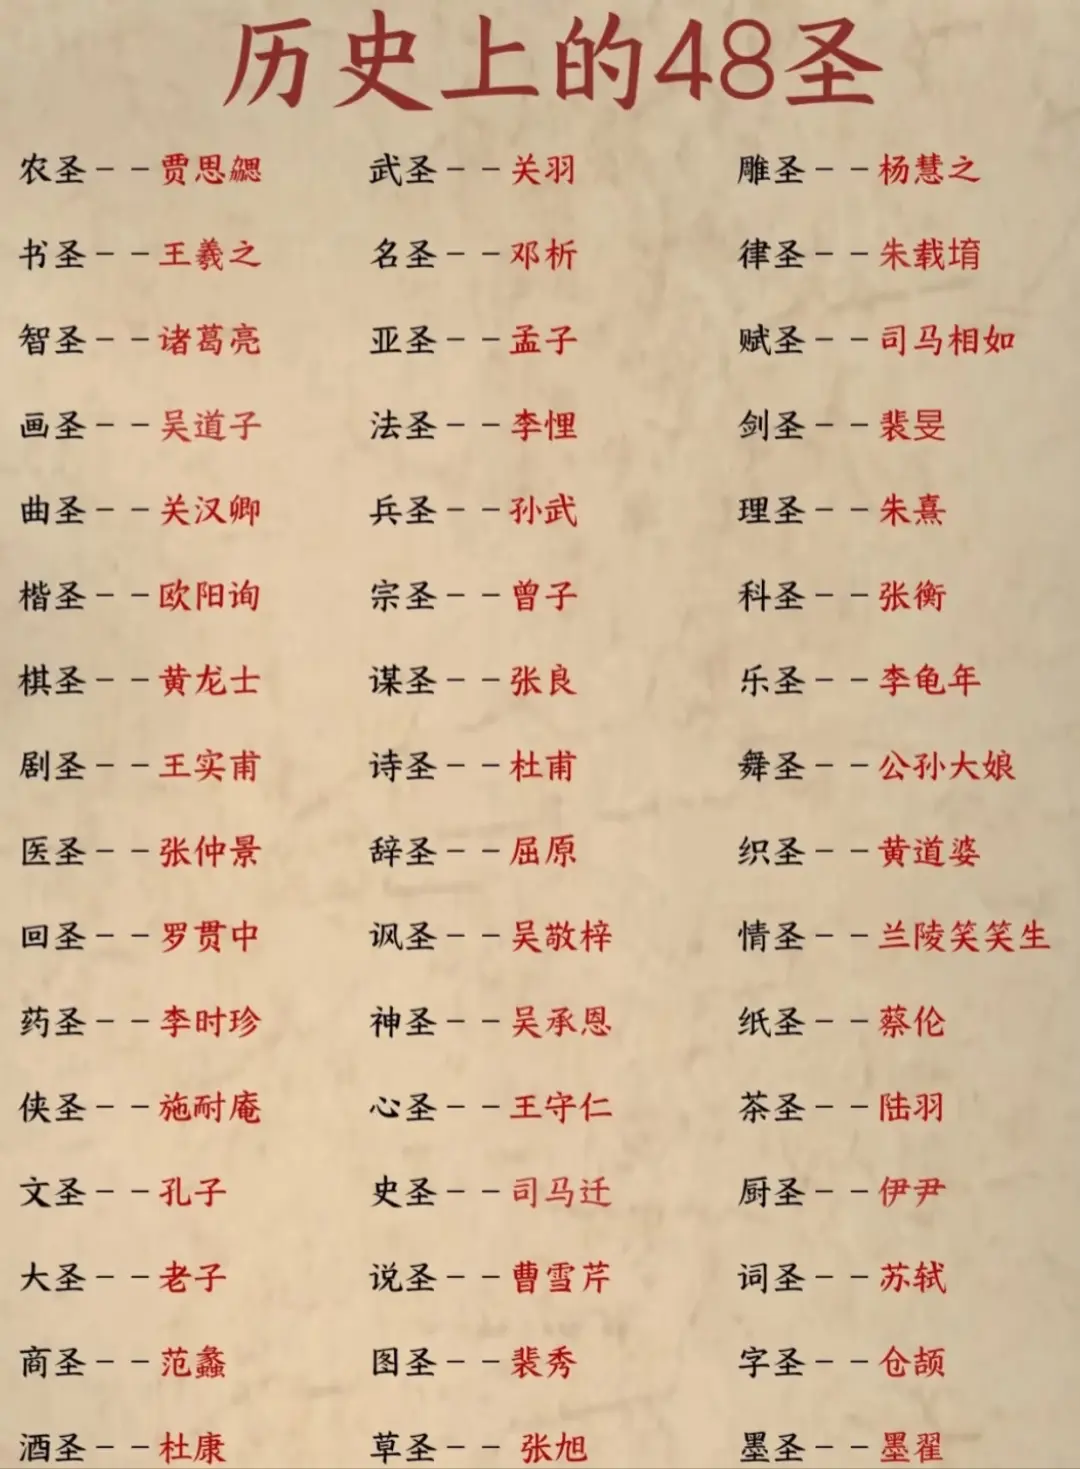 历史上的48圣
农圣--贾思勰 武圣--关羽 雕圣--杨慧之
书圣--王羲之 名圣--邓析 律圣--朱载堉
智圣--诸葛亮 亚圣--孟子 赋圣--司马相如
画圣--吴道子 法圣--李悝 剑圣--裴旻
曲圣--关汉卿 兵圣--孙武 理圣--朱熹
楷圣--欧阳询 宗圣--曾子 科圣--张衡
棋圣--黄龙士 谋圣--张良 乐圣--李龟年
剧圣--王实甫 诗圣--杜甫 舞圣--公孙大娘
医圣--张仲景 辞圣--屈原 织圣--黄道婆
回圣--罗贯中 讽圣--吴敬梓 情圣--兰陵笑笑生
药圣--李时珍 神圣--吴承恩 纸圣--蔡伦
侠圣--施耐庵 心圣--王守仁 茶圣--陆羽
文圣--孔子 史圣--司马迁 厨圣--伊尹
大圣--老子 说圣--曹雪芹 词圣--苏轼
商圣--范蠡 图圣--裴秀 字圣--仓颉
酒圣--杜康 草圣--张旭 墨圣--墨翟